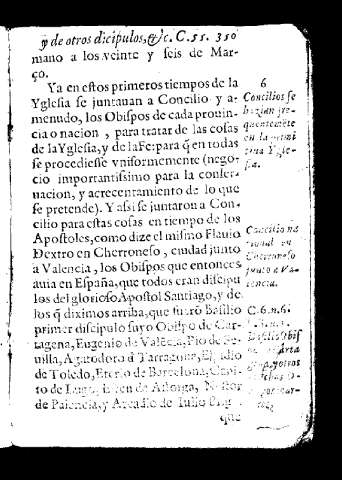 y de otros dicipulos, &c. C.55. 350
mano a los veinte y seis de Mar-
ço.
Ya en estos primeros tiempos de la
Yglesia se juntauan a Concilio y a-
menudo, los Obispos de cada prouin-
cia o nacion, para tratar de las cosas
de la Yglesia, y de la Fe: para q̃ en todas
se procediesse vniformemente (nego-
cio importantissimo para la conser-
uacion, y acrecentamiento de lo que
se pretende). Y assi se juntaron a Con-
cilio para estas cosas en tiempo de los
Apostoles, como dize el mismo Flauio
Dextro en Cherroneso, ciudad junto
a Valencia, los Obispos que entonces
auia en España, que todos eran discipu
los del glorioso Apostol Santiago, y de
los q̃ diximos arriba, que fuerõ Basilio
primer discipulo suyo Obispo de Car-
tagena, Eugenio de Valẽcia, Pio de Se-
uilla, Agatodoro d̃ Tarragona, Elpidio
de Toledo, Eterio de Barcelona, Capi-
to de Lugo, Efren de Astorga, Nestor
de Palencia, y Arcadio de Iulio
que
6
Concilios se
hazian fre-
quentemẽte
en la primi
tiua Ygle-
sia.
Concilio na
cional en
Cherroneso
junto a Va-
lencia.
C. 6. n. 6.